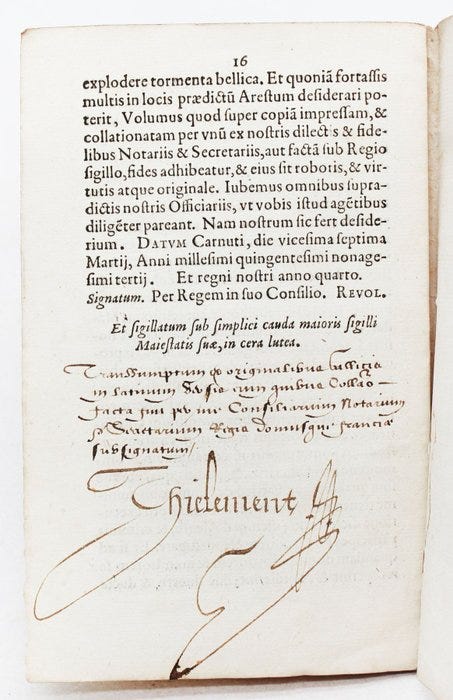 16
explodere tormenta bellica. Et quoniā fortassis
multis in locis prædictũ Arestum desiderari po-
terit, Volumus quod super copiā impressam, &
collationatam per vnũ ex nostris dilectis & fide-
libus Notariis & Secretariis, aut factā sub Regio
sigillo, fides adhibeatur, & eius sit roboris, & vir-
tutis atque originale. Iubemus omnibus supra-
dictis nostris Officiariis, vt vobis istud agētibus
diligēter pareant. Nam nostrum sic fert deside-
rium. DATVM Carnuti, die vicesima septima
Martij, Anni millesimi quingentesimi nonage-
simi tertij. Et regni nostri anno quarto.
Signatum. Per Regem in suo Consilio. REVOL.
Et sigillatum sub simplici cauda maioris sigilli
Maiestatis suæ, in cera lutea.
Transsumptum originalibus
in latinum cum quibus Collao
facta fuit per me Consiliarium Notarium
Secretarium Regis domusque franciæ
subsignatum
Thielement